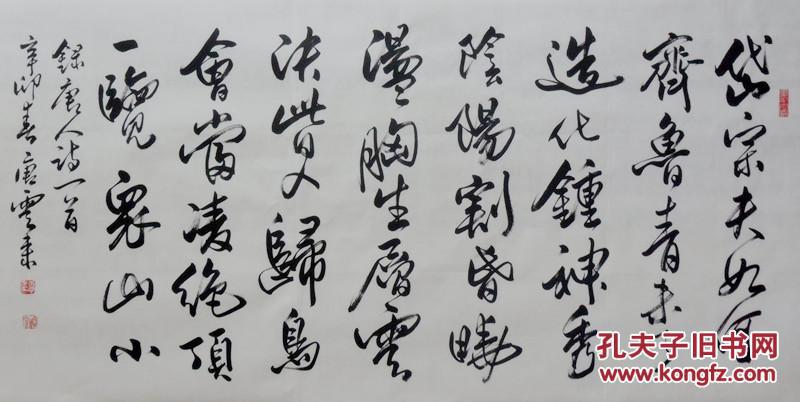 岱宗夫如何
齊魯青未
造化鍾神秀
陰陽割昏曉
盪胸生層雲
決眥入歸鳥
會當凌絕頂
一覽眾山小
錄唐人詩一首
辛卯春唐雲來
孔夫子旧书网
www.kongfz.com